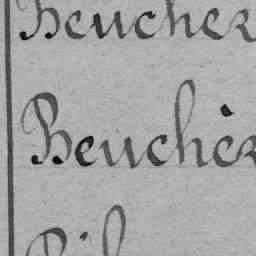 Beucher
Beuchèr